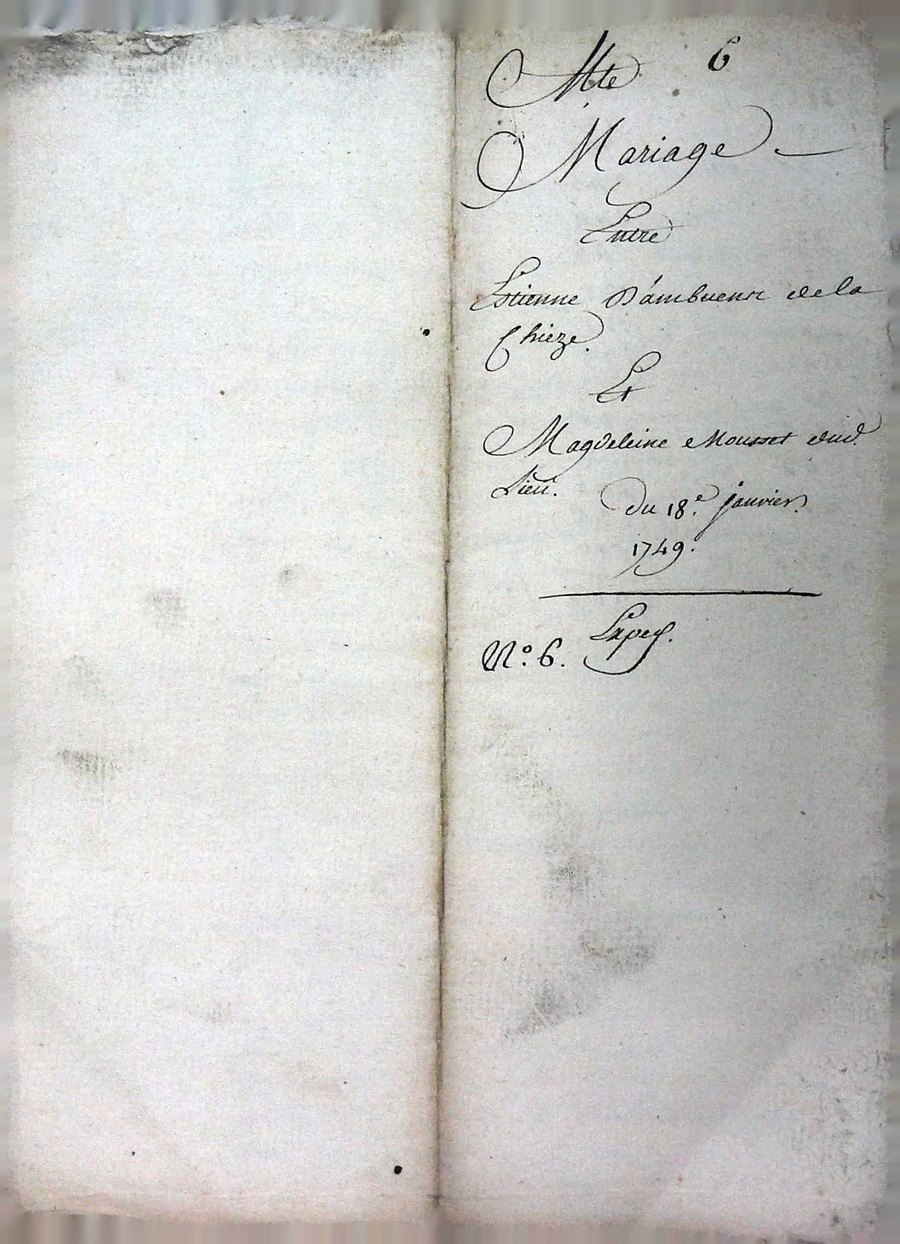 6
Mariage
Entre
Estienne D'ambuent de la
Chieze.
Et
Magdeleine Mousset dud.
Lieu.
Du 18.e janvier
1749.
Exped.
No. 6.